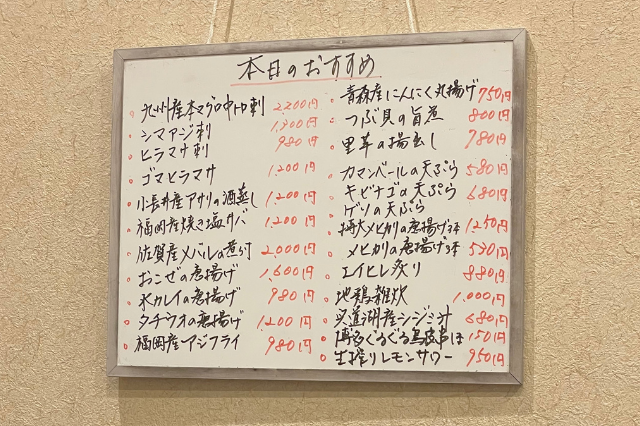 本日のおすすめ
九州産本マグロ中トロ刺 2,200円
シマアジ刺 1,300円
ヒラマサ刺 980円
ゴマヒラマサ 1,200円
小長井産アサリの酒蒸し 1,200円
福岡産焼き塩サバ 1,200円
佐賀産メバルの煮付 2,000円
おこぜの唐揚げ 1,600円
水カレイの唐揚げ 980円
タチウオの唐揚げ 1,200円
福岡産アジフライ 980円
青森産にんにく丸揚げ 750円
つぶ貝の旨煮 800円
里芋の揚出し 780円
カマンベールの天ぷら 580円
キビナゴの天ぷら 680円
ゲソの天ぷら
特大メヒカリの唐揚げ3本 1,250円
メヒカリの唐揚げ3本 530円
エイヒレ炙り 880円
地鶏雑炊 1,000円
宍道湖産シジミ汁 680円
博多ぐるぐる鳥皮串1本 150円
生搾りレモンサワー 950円